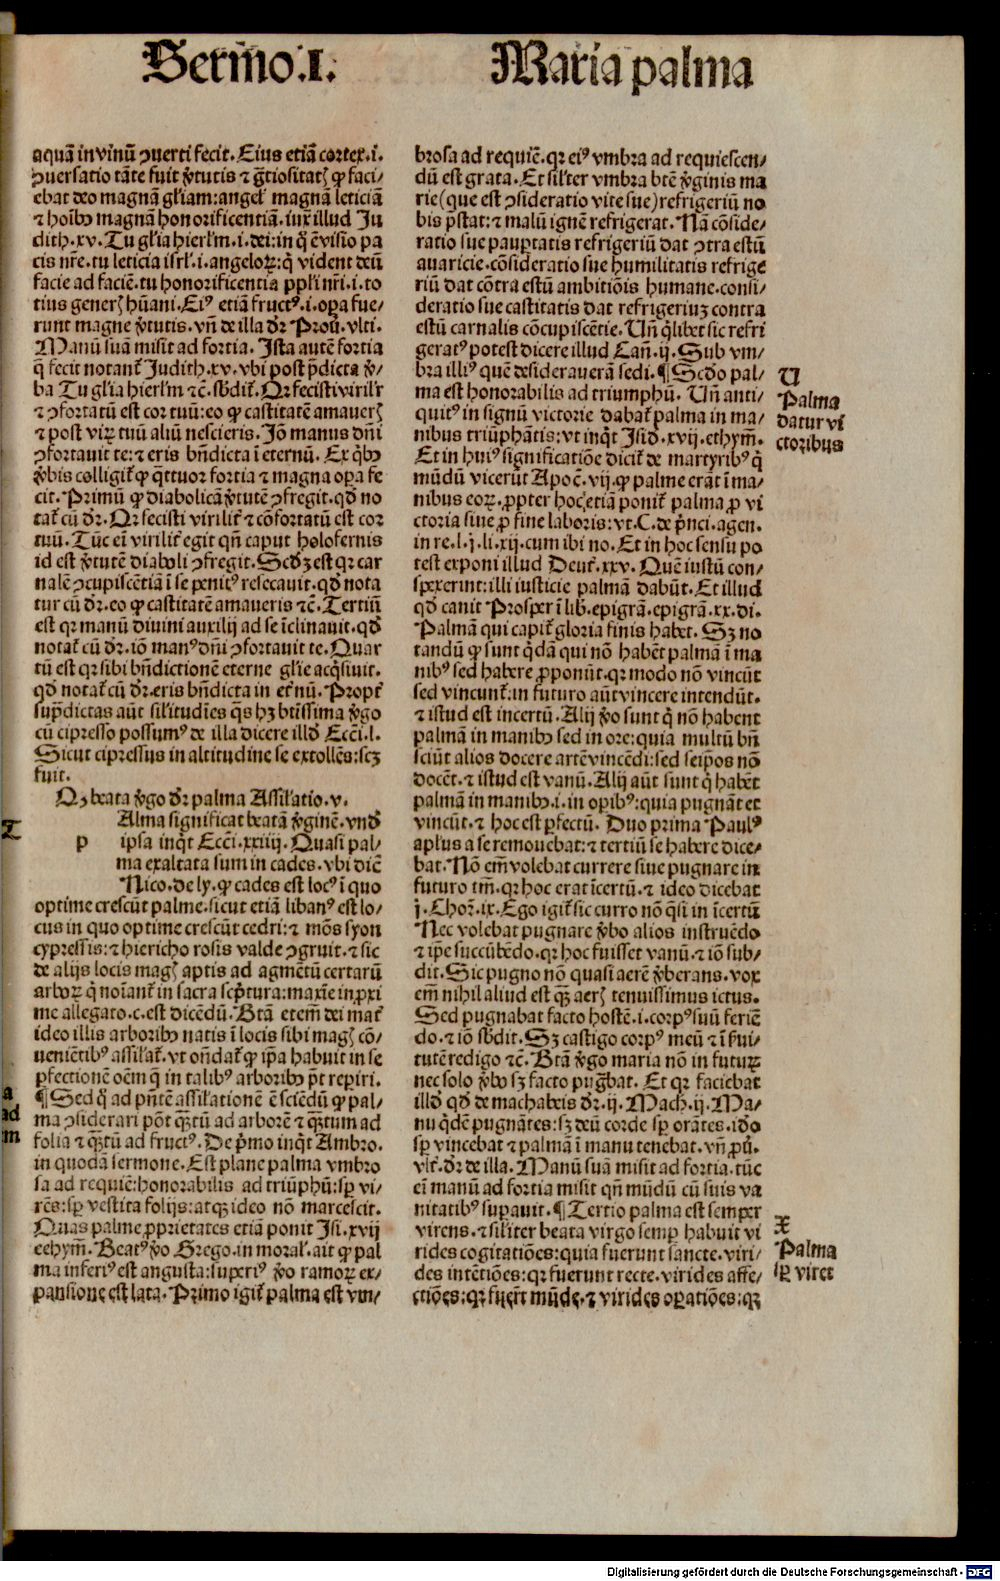 Sermo .I. Maria palma
aquā in vinū ꝯverti fecit. Eius etiā cortex .i.
ꝯversatio tāte fuit v̓tutis ⁊ gr̄tiositatꝭ ꝙ faci-
ebat deo magnā gl̓iam: angel̓ magnā leticiā
⁊ hoībꝰ magnā honorificentiā. iux̄ illud Ju
dith .xv. Tu gl̓ia hierl̓m .i. dei: in q̄ ē visio pa
cis nr̄e. tu leticia isrl̓ .i. angeloꝝ: q̄ vident deū
facie ad faciē. tu honorificentia ppl̓i nr̄i .i. to
tius generꝭ hūani. Eiꝰ etiā fructꝰ .i. oꝑa fue-
runt magne v̓tutis. vn̄ de illa dr̄ Prou̓. vlti.
Manū suā misit ad fortia. Ista autē fortia
q̄ fecit notant̄ Judith .xv. vbi post p̄dicta v̓-
ba Tu gl̓ia hierl̓m ⁊c̄. sb̓dit̄. Qꝛ fecisti virilr̄
⁊ ꝯfortatū est cor tuū: eo ꝙ castitatē amauerꝭ
⁊ post viꝝ tuū aliū nescieris. Jō manus dn̄i
ꝯfortauit te: ⁊ eris bn̄dicta ī eternū. Ex q̄bꝰ
v̓bis colligit̄ ꝙ q̄ttuor fortia ⁊ magna oꝑa fe
cit. Primū ꝙ diabolicā v̓tutē ꝯfregit. qd̓ no
tat̄ cū dr̄. Qꝛ fecisti virilit̄ ⁊ cōfortatū est cor
tuū. Tūc eī virilit̄ egit qn̄ caput holofernis
id est v̓tutē diaboli ꝯfregit. Scd̓ꝫ est qꝛ car
nalē ꝯcupiscētiā ī se penitꝰ resecauit. qd̓ nota
tur cū dr̄. eo ꝙ castitatē amaueris ⁊c̄. Tertiū
est qꝛ manū diuini auxilij ad se īclinauit. qd̓
notat̄ cū dr̄. iō manꝰ dn̄i ꝯfortauit te. Quar
tū est qꝛ sibi bn̄dictionē eterne gl̓ie acq̄siuit.
qd̓ notat̄ cū dr̄. eris bn̄dicta in et̄nū. Propt̄
sup̄dictas aūt sil̓itudīes q̄s hꝫ btīssima v̓go
cū cipresso possumꝰ de illa dicere illd̓ Ecc̄i .l.
Sicut cipressus in altitudine se extollēs: scꝫ
fuit.
Qꝫ beata v̓go dr̄ palma Assil̓atio .v.
Alma significat beatā v̓ginē. vnd̓
p ipsa inq̄t Ecc̄i .xxiiij. Quasi pal-
ma exaltata sum in cades. vbi dicē
Nico. de ly. ꝙ cades est locꝰ ī quo
optime crescūt palme. sicut etiā libanꝰ est lo-
cus in quo optime crescūt cedri: ⁊ mōs syon
cypressis: ⁊ hiericho rosis valde ꝯgruit. ⁊ sic
de alijs locis magꝭ aptis ad agmētū certarū
arboꝝ q̄ noīant̄ in sacra scp̄tura: maxīe in ꝓxi
me allegato .c. est dicēdū. Btā etem̄ dei mat̄
ideo illis arboribꝰ natis ī locis sibi magꝭ cō-
uenietibꝰ assil̓at̄. vt on̄dat̄ ꝙ ip̄a habuit in se
ꝑfectionē oēm q̄ in talibꝰ arboribꝰ p̄t reꝑiri.
¶ Sed q̄ ad pn̄tē assil̓ationē ē sciēdū ꝙ pal-
ma ꝯsiderari pōt qꝫtū ad arborē ⁊ qꝫtum ad
folia ⁊ qꝫtū ad fructꝰ. De p̄mo inq̄t Ambro.
in quodā sermone. Est plane palma vmbro
sa ad requiē: honorabilis ad triūphū: sp̄ vi-
rēs: sp̄ vestita folijs: atqꝫ ideo nō marcescit.
Quas palme ꝓprietates etiā ponit Isi .xvij
ethym̄. Beatꝰ v̓o Grego. in moral̓. ait ꝙ pal
ma inferiꝰ est angusta: superiꝰ v̓o ramoꝝ ex-
pansione est lata. Primo igit̄ palma est vm-
brosa ad requiē. qꝛ eiꝰ vmbra ad requiescen-
dū est grata. Et sil̓ter vmbra btē v̓ginis ma
rie (que est ꝯsideratio vite sue) refrigeriū no
bis p̄stat: ⁊ malū ignē refrigerat. Nā cōside-
ratio sue pauꝑtatis refrigeriū dat ꝯtra estū
auaricie. cōsideratio sue humilitatis refrige
riū dat cōtra estū ambitiōis humane. consi-
deratio sue castitatis dat refrigeriuꝫ contra
estū carnalis cōcupiscētie. Un̄ q̄libet sic refri
geratꝰ potest dicere illud Cāñ .ij. Sub vm-
bra illiꝰ quē desideraverā sedi. ¶ Scd̓o pal-
ma est honorabilis ad triumphū. Un̄ anti-
quitꝰ in signū victorie dabat̄ palma in ma-
nibus triūphātis: vt inq̄t Isid̓ .xvij. ethym̄.
Et in huiꝰ significatiōe dicit̄ de martyribꝰ q̄
mūdū vicerūt Apoc̄ .vij. ꝙ palme erāt ī ma-
nibus eoꝝ. ꝓpter hoc etiā ponit̄ palma ꝓ vi
ctoria siue ꝓ fine laboris: vt .C. de p̄nci. agen.
in re .l. j. li. xij. cum ibi no. Et in hoc sensu po
test exponi illud Deut̄ .xxv. Quē iustū con-
spexerint: illi iusticie palmā dabūt. Et illud
qd̓ canit Prosper ī lib̓. epigrā. epigrā. xx. di.
Palmā qui capit̄ gloria finis habet. Sꝫ no
tandū ꝙ sunt q̄dā qui nō habēt palmā ī ma
nibꝰ sed habere ꝓponūt. qꝛ modo nō vincūt
sed vincunt̄: in futuro aūt vincere intendūt.
⁊ istud est incertū. Alij v̓o sunt q̄ nō habent
palmā in manibꝰ sed in ore: quia multū bn̄
sciūt alios docere artē vincēdi: sed seip̄os nō
docēt. ⁊ istud est vanū. Alij aūt sunt q̄ habēt
palmā in manibꝰ .i. in oꝑibꝰ: quia pugnāt et
vincūt. ⁊ hoc est ꝑfectū. Duo prima Paulꝰ
apl̓us a se remouebat: ⁊ tertiū se habere dice-
bat. Nō em̄ volebat currere siue pugnare in
futuro tm̄. qꝛ hoc erat īcertū. ⁊ ideo dicebat
j. Chor̄ .ix. Ego igit̄ sic curro nō q̄si in īcertū
Nec volebat pugnare v̓bo alios instruēdo
⁊ ip̄e succūbēdo. qꝛ hoc fuisset vanū. ⁊ iō sub-
dit. Sic pugno nō quasi aerē v̓berans. vox
em̄ nihil aliud est qꝫ aerꝭ tenuissimus ictus.
Sed pugnabat facto hostē .i. corpꝰ suū feriē
do. ⁊ iō sb̓dit. Sꝫ castigo corpꝰ meū ⁊ ī ẜui-
tutē redigo ⁊c̄. Btā v̓go maria nō in futuꝝ
nec solo v̓bo sꝫ facto pug̓bat. Et qꝛ faciebat
illd̓ qd̓ de machabeis dr̄ .ij. Mach̓ .ij. Ma-
nu q̄dē pugnātes: sꝫ deū corde sp̄ orātes. iD̄o
sp̄ vincebat ⁊ palmā ī manu tenebat. vn̄ ꝓu̓.
vlt̄. dr̄ de illa. Manū suā misit ad fortia. tūc
eī manū ad fortia misit qn̄ mūdū cū suis va
nitatibꝰ suꝑauit. ¶ Tertio palma est semper
virens. ⁊ sil̓iter beata virgo semꝑ habuit vi
rides cogitatiōes: quia fuerunt sancte. viri-
des intētiōes: qꝛ fuerunt recte. virides affe-
ctiōes: qꝛ fuerūt mūde. ⁊ virides oꝑatiōes: qꝛ
T
a
ad
m
U
Palma
datur vi
ctoribus
X
Palma
sp̄ viret
Digitalisierung gefördert durch die Deutsche Forschungsgemeinschaft - DFG